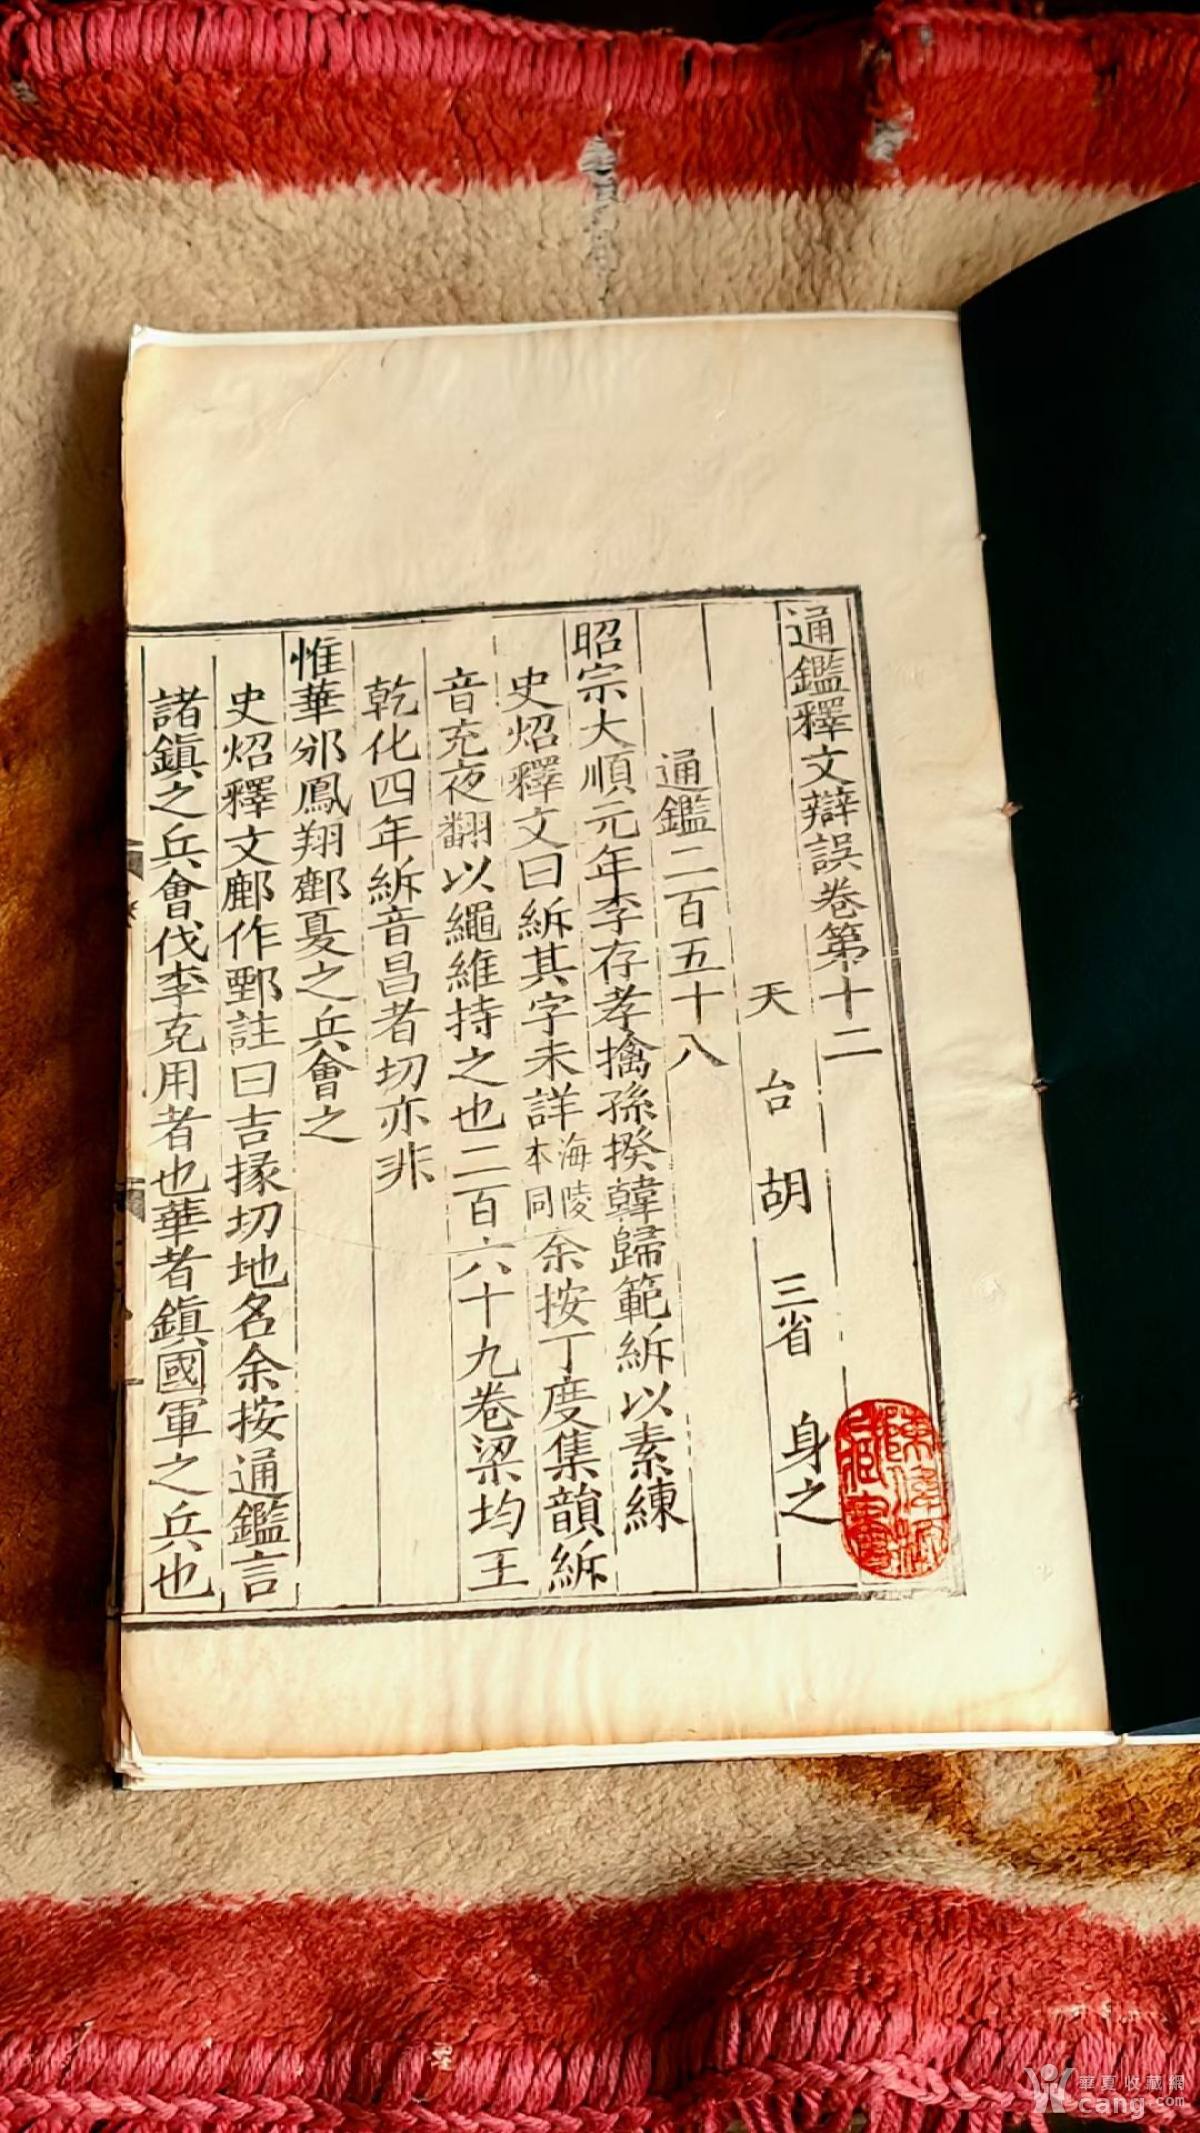 通鑑釋文辯誤卷第十二
天台胡三省身之
通鑑二百五十八
昭宗大順元年李存孝擒孫揆韓歸範䋲以素練
史炤釋文曰䋲其字未詳海陵本同余按丁度集韻䋲
音充夜翻以繩維持之也二百六十九卷梁均王
乾化四年䋲音昌者切亦非
惟華邠鳳翔鄜夏之兵會之
史炤釋文鄜作鄄註曰吉掾切地名余按通鑑言
諸鎮之兵會伐李克用者也華者鎮國軍之兵也
藏書
華夏收藏網
cang.com